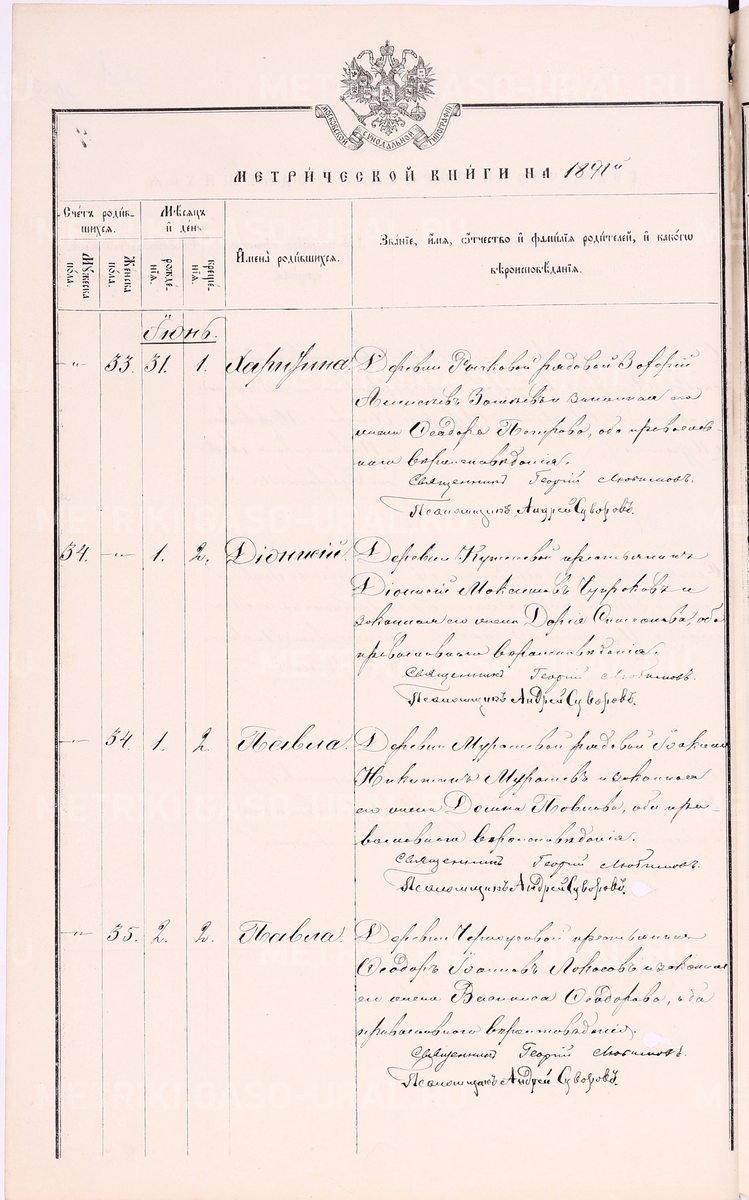 МОСКОВСКОЙ СѴНОДАЛЬНОЙ ТИПОГРАФІИ
МЕТРИ́ЧЕСКОЙ КНИ́ГИ НА 1891й
Сче́тъ роди́в-
шихся.
Мѣ́сяцъ
и҆ де́нь
Му́жеска
по́ла.
Же́нска
по́ла.
рожде́-
нїя.
креще́-
нїя.
И҆мена̀ роди́вшихся.
Зва́нїе, и҆́мя, ѻ҆́тчество и҆ фами́лїя роди́телей, и҆ како́гѡ
вѣроисповѣ́данїя.
Іюнь.
-"- 33. 31. 1. Харитина. Деревни рядовой
законная его
жена Ѳеодора Петрова, оба православ-
наго вероисповѣданія.
Священникъ Георгій Любимовъ.
Псаломщикъ Андрей Суворовъ.
34. -"- 1. 2. Діонисій. Деревни крестьянинъ
Діонисій и
законная его жена Дарія оба
православнаго вероисповѣданія.
Священникъ Георгій Любимовъ.
Псаломщикъ Андрей Суворовъ.
-"- 34. 1. 2. Павла. Деревни Мурашевой рядовой
Никитинъ Мурашевъ и законная
его жена Домна Павлова, оба пра-
вославнаго вероисповѣданія.
Священникъ Георгій Любимовъ.
Псаломщикъ Андрей Суворовъ.
-"- 35. 2. 2. Павла. Деревни крестьянинъ
Ѳеодоръ Іоанновъ и законная
его жена Васса Ѳеодорова, оба
православнаго вероисповѣданія.
Священникъ Георгій Любимовъ.
Псаломщикъ Андрей Суворовъ.